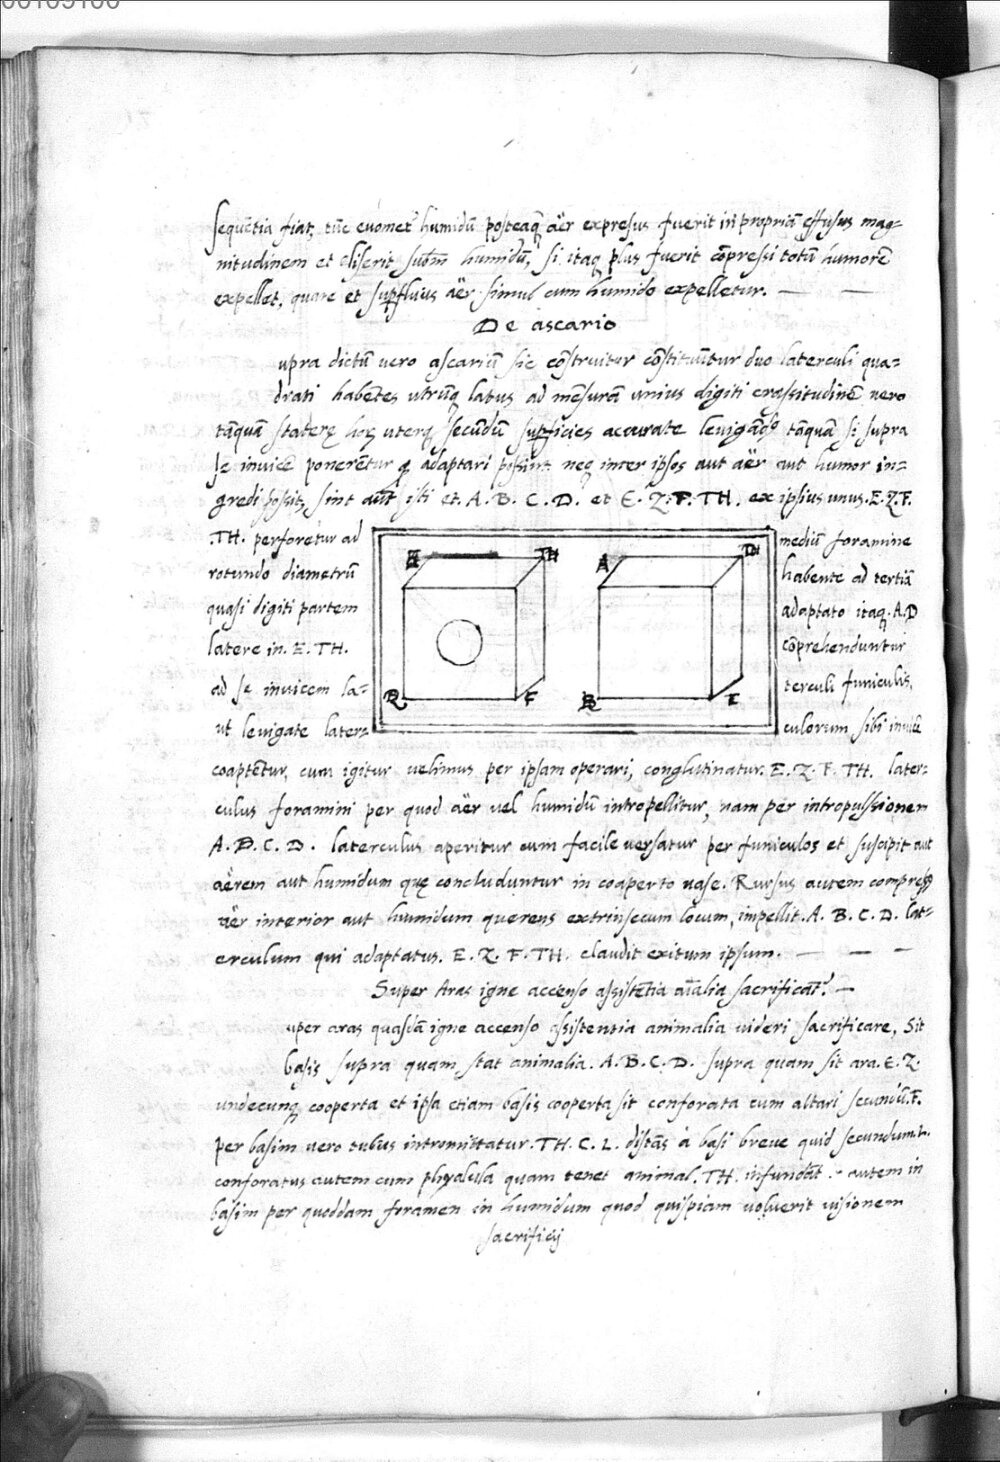 sequẽtia fiat, tũc euomet humidũ posteaq̃ aër expresus fuerit in propriã effusus mag-
nitudinem et eliserit subm̃ humidũ, si itaq plus fuerit cõpressi totũ humorẽ
expellet, quare et supfluius aër simul cum humido expelletur.
De ascario
upra dictũ vero ascariũ sic cõstruitur cõstituũtur duo laterculi qua-
drati habẽtes utrũq latus ad mẽsurã unius digiti crassitudinẽ vero
tãquã staterę hoꝝ uterq secũdũ supficies accurate leuigãdo tãquã si supra
se inuicẽ ponerẽtur adaptari possint neq inter ipsos aut aër aut humor in-
gredi possit, sint aũt isti et A. B. C. D. et E. Z. F. TH. ex ipsius unus. E. Z. F.
.TH. perforetur ad mediũ foramine
rotundo diametrũ habente ad tertiã
quasi digiti partem adaptato itaq. A.D
latere in. E. TH. cõprehenduntur
ad se inuicem la- terculi funiculis,
ut leuigate later- culorum sibi inuicẽ
TH
A
D
B
F
B
coaptẽtur, cum igitur uelimus per ipsam operari, conglutinatur. E. Z. F. TH. later-
culus foramini per quod aër uel humidũ intropellitur, nam per intropulssionem
A. B. C. D. laterculus aperitur cum facile uersatur per funiculos et suscipit aut
aërem aut humidum quę concluduntur in coaperto uase. Rursus autem compressus
aër interior aut humidum querens extrinsecum locum, impellit. A. B. C. D. lat-
erculum qui adaptatus. E. Z. F. TH. claudit exitum ipsum.
Super Aras igne accenso assistẽtia aĩalia sacrificãt.
uper aras quasdã igne accenso assistentia animalia uideri sacrificare, Sit
basis supra quam stat animalia. A. B. C. D. supra quam sit ara. E. Z.
undecunq cooperta et ipsa etiam basis cooperta sit conforata cum altari secundũ. F.
per basim vero tubus intromittatur. TH. C. L. distãs à basi breue quid secundum. L.
conforatus autem cum phyalula quam tenet animal. TH. infundat autem in
basim per quoddam foramen in humidum quod quispiam uoluerit uisionem
sacrificij